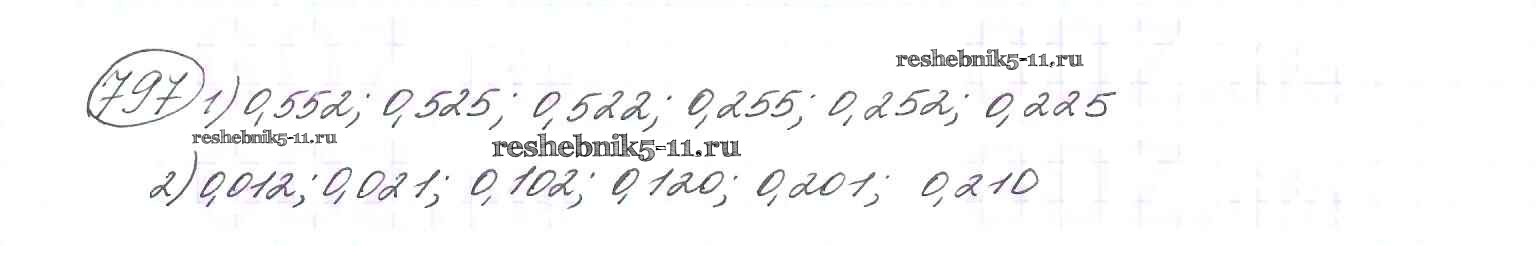 reshebnik5-11.ru
797 1) 0,552; 0,525; 0,522; 0,255; 0,252; 0,225
reshebnik5-11.ru
reshebnik5-11.ru
2) 0,012; 0,021; 0,102; 0,120; 0,201; 0,210